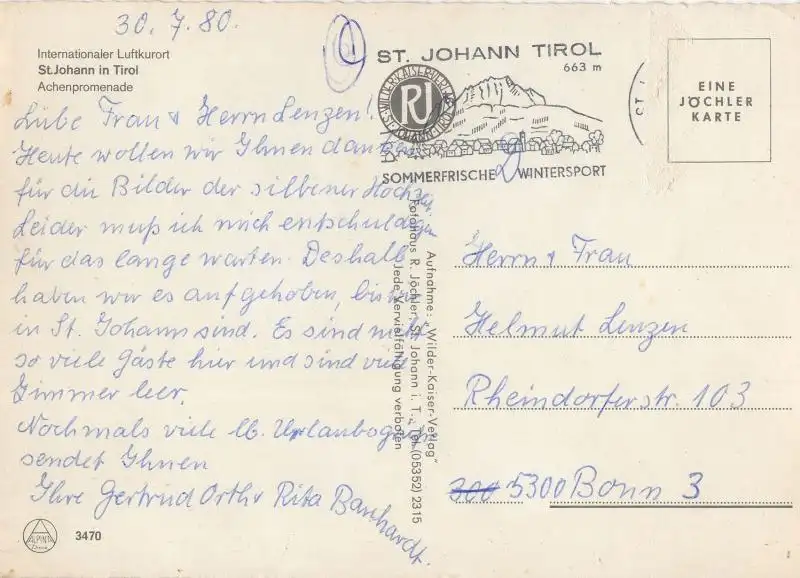 30.7.80.
Internationaler Luftkurort
St.Johann in Tirol
Achenpromenade
Liebe Frau + Herrn Lenzen!
Heute wollen wir Ihnen danken
für die Bilder der silbener Hochzeit.
Leider muß ich mich entschuldigen
für das lange warten. Deshalb
haben wir es aufgehoben, bis wir
in St. Johann sind. Es sind nicht
so viele Gäste hier und sind viele
Zimmer leer.
Nochmals viele lb. Urlaubsgrüße
sendet Ihnen
Ihre Gertrud Orth + Rita Banhardt.
ALPINA
Druck
3470
ST. JOHANN TIROL
663 m
WILDER-KAISER-VERLAG
RJ
ST. JOHANN TIROL
SOMMERFRISCHE WINTERSPORT
ST
EINE
JÖCHLER
KARTE
Aufnahme: „Wilder-Kaiser-Verlag"
Fotohaus R. Jöchler, St. Johann i. T., Tel. (05352) 2315
Jede Vervielfältigung verboten
Herrn + Frau
Helmut Lenzen
Rheindorferstr. 103
300 5300 Bonn 3